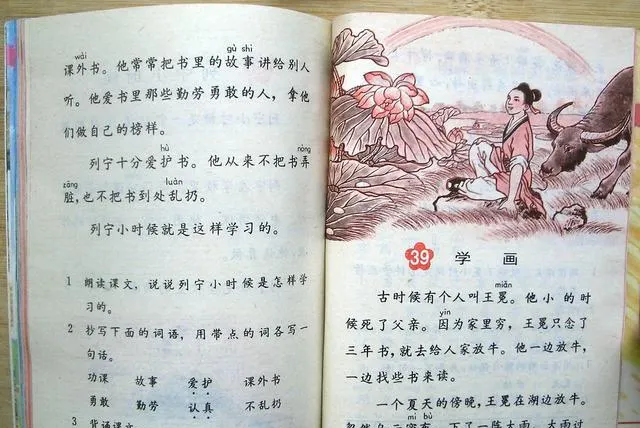 wài
gù shi
课外书。他常常把书里的故事讲给别人
听。他爱书里那些勤劳勇敢的人，拿他
们做自己的榜样。
hù
nòng
列宁十分爱护书。他从来不把书弄
zāng
luàn
脏，也不把书到处乱扔。
列宁小时候就是这样学习的。
1 朗读课文，说说列宁小时候是怎样学
习的。
2 抄写下面的词语，用带点的词各写一
句话。
功课 故事 爱护 课外书
勇敢 勤劳 认真 不乱扔
3 背诵课文。
39 学画
miǎn
古时候有个人叫王冕。他小的时
候死了父亲。因为家里穷，王冕只念了
yīn
三年书，就去给人家放牛。他一边放牛，
一边找些书来读。
一个夏天的傍晚，王冕在湖边放牛。
mì bù
忽然乌云密布，下了一阵大雨。大雨过